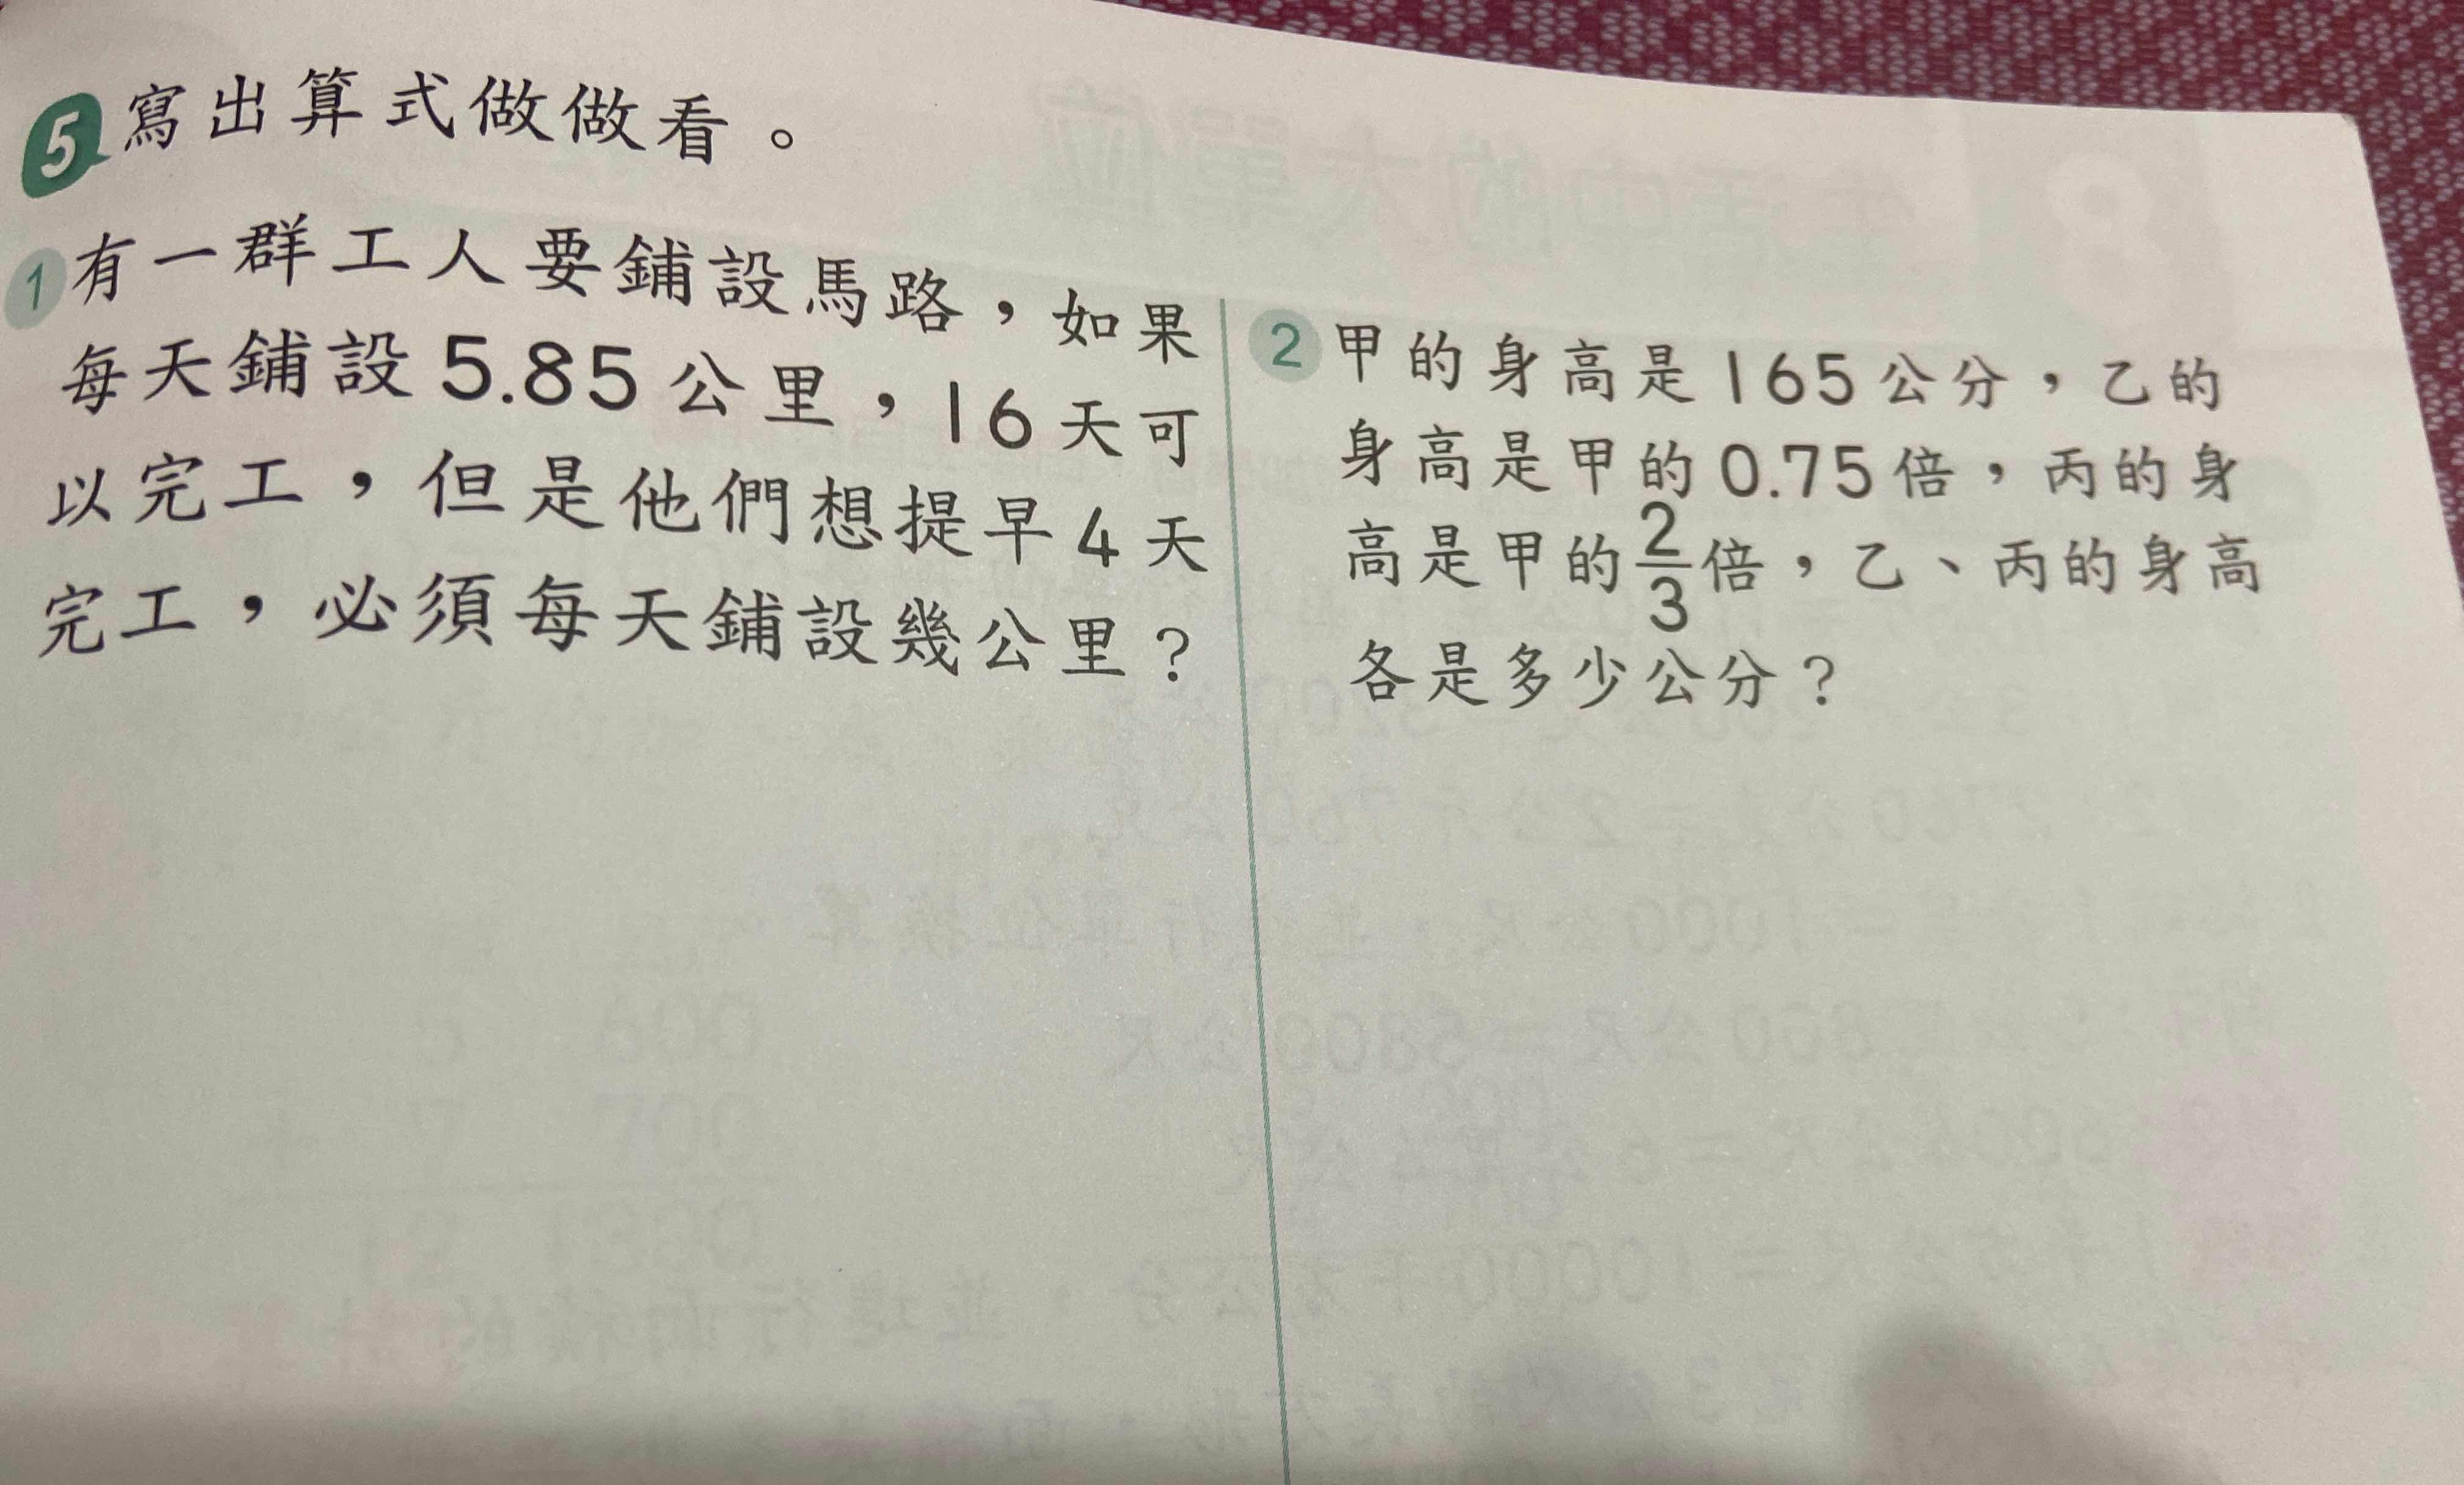 5 寫出算式做做看。
1 有一群工人要鋪設馬路，如果
每天鋪設5.85公里，16天可
以完工，但是他們想提早4天
完工，必須每天鋪設幾公里？
2 甲的身高是165公分，乙的
身高是甲的0.75倍，丙的身
高是甲的2/3倍，乙、丙的身高
各是多少公分？